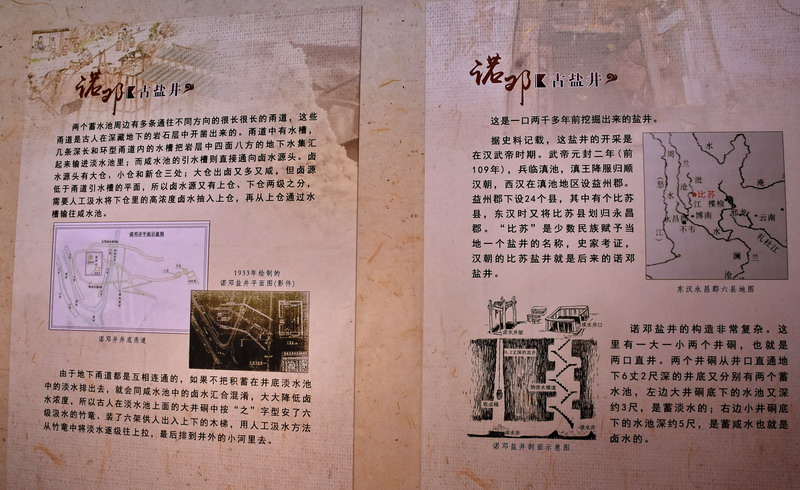 诺邓古盐井
两个蓄水池周边有多条通往不同方向的很长很长的甬道，这些
甬道是古人在深藏地下的岩石层中开凿出来的。甬道中有水槽，
几条深长和环型甬道内的水槽把岩层中四面八方的地下水集汇
起来输进淡水池里；而咸水池的引水槽则直接通向卤水源头。卤
水源头有大仓、小仓和新仓三处；大仓出卤又多又咸，但卤源
低于甬道引水槽的平面，所以卤水源又有上仓、下仓两级之分，
需要人工汲水将下仓里的高浓度卤水抽入上仓，再从上仓通过水
槽输往咸水池。
诺邓井井底甬道
1933年绘制的
诺邓盐井平面图(影件)
由于地下甬道都是互相连通的，如果不把积蓄在井底淡水池
中的淡水排出去，就会同咸水池中的卤水汇合混淆，大大降低卤
水浓度，所以古人在淡水池上面的大井硐中按“之”字型安了六
级汲水的竹竜，装了六架供人出入上下的木梯，用人工汲水方法
从竹竜中将淡水逐级往上拉，最后排到井外的小河里去。
诺邓古盐井
这是一口两千多年前挖掘出来的盐井。
据史料记载，这盐井的开采是
在汉武帝时期。武帝元封二年（前
109年），兵临滇池，滇王降服归顺
汉朝，西汉在滇池地区设益州郡。
益州郡下设24个县，其中有个比苏
县，东汉时又将比苏县划归永昌
郡。“比苏”是少数民族赋予当
地一个盐井的名称，史家考证，
汉朝的比苏盐井就是后来的诺邓
盐井。
比苏
楪榆
博南
云南
永昌
不韦
礼社江
澜
沧
江
东汉永昌郡六县地图
诺邓盐井的构造非常复杂。这
里有一大一小两个井硐，也就是
两口直井。两个井硐从井口直通地
下6丈2尺深的井底又分别有两个蓄
水池，左边大井硐底下的水池又深
约3尺，是蓄淡水的；右边小井硐底
下的水池深约5尺，是蓄咸水也就是
卤水的。
诺邓盐井剖面示意图